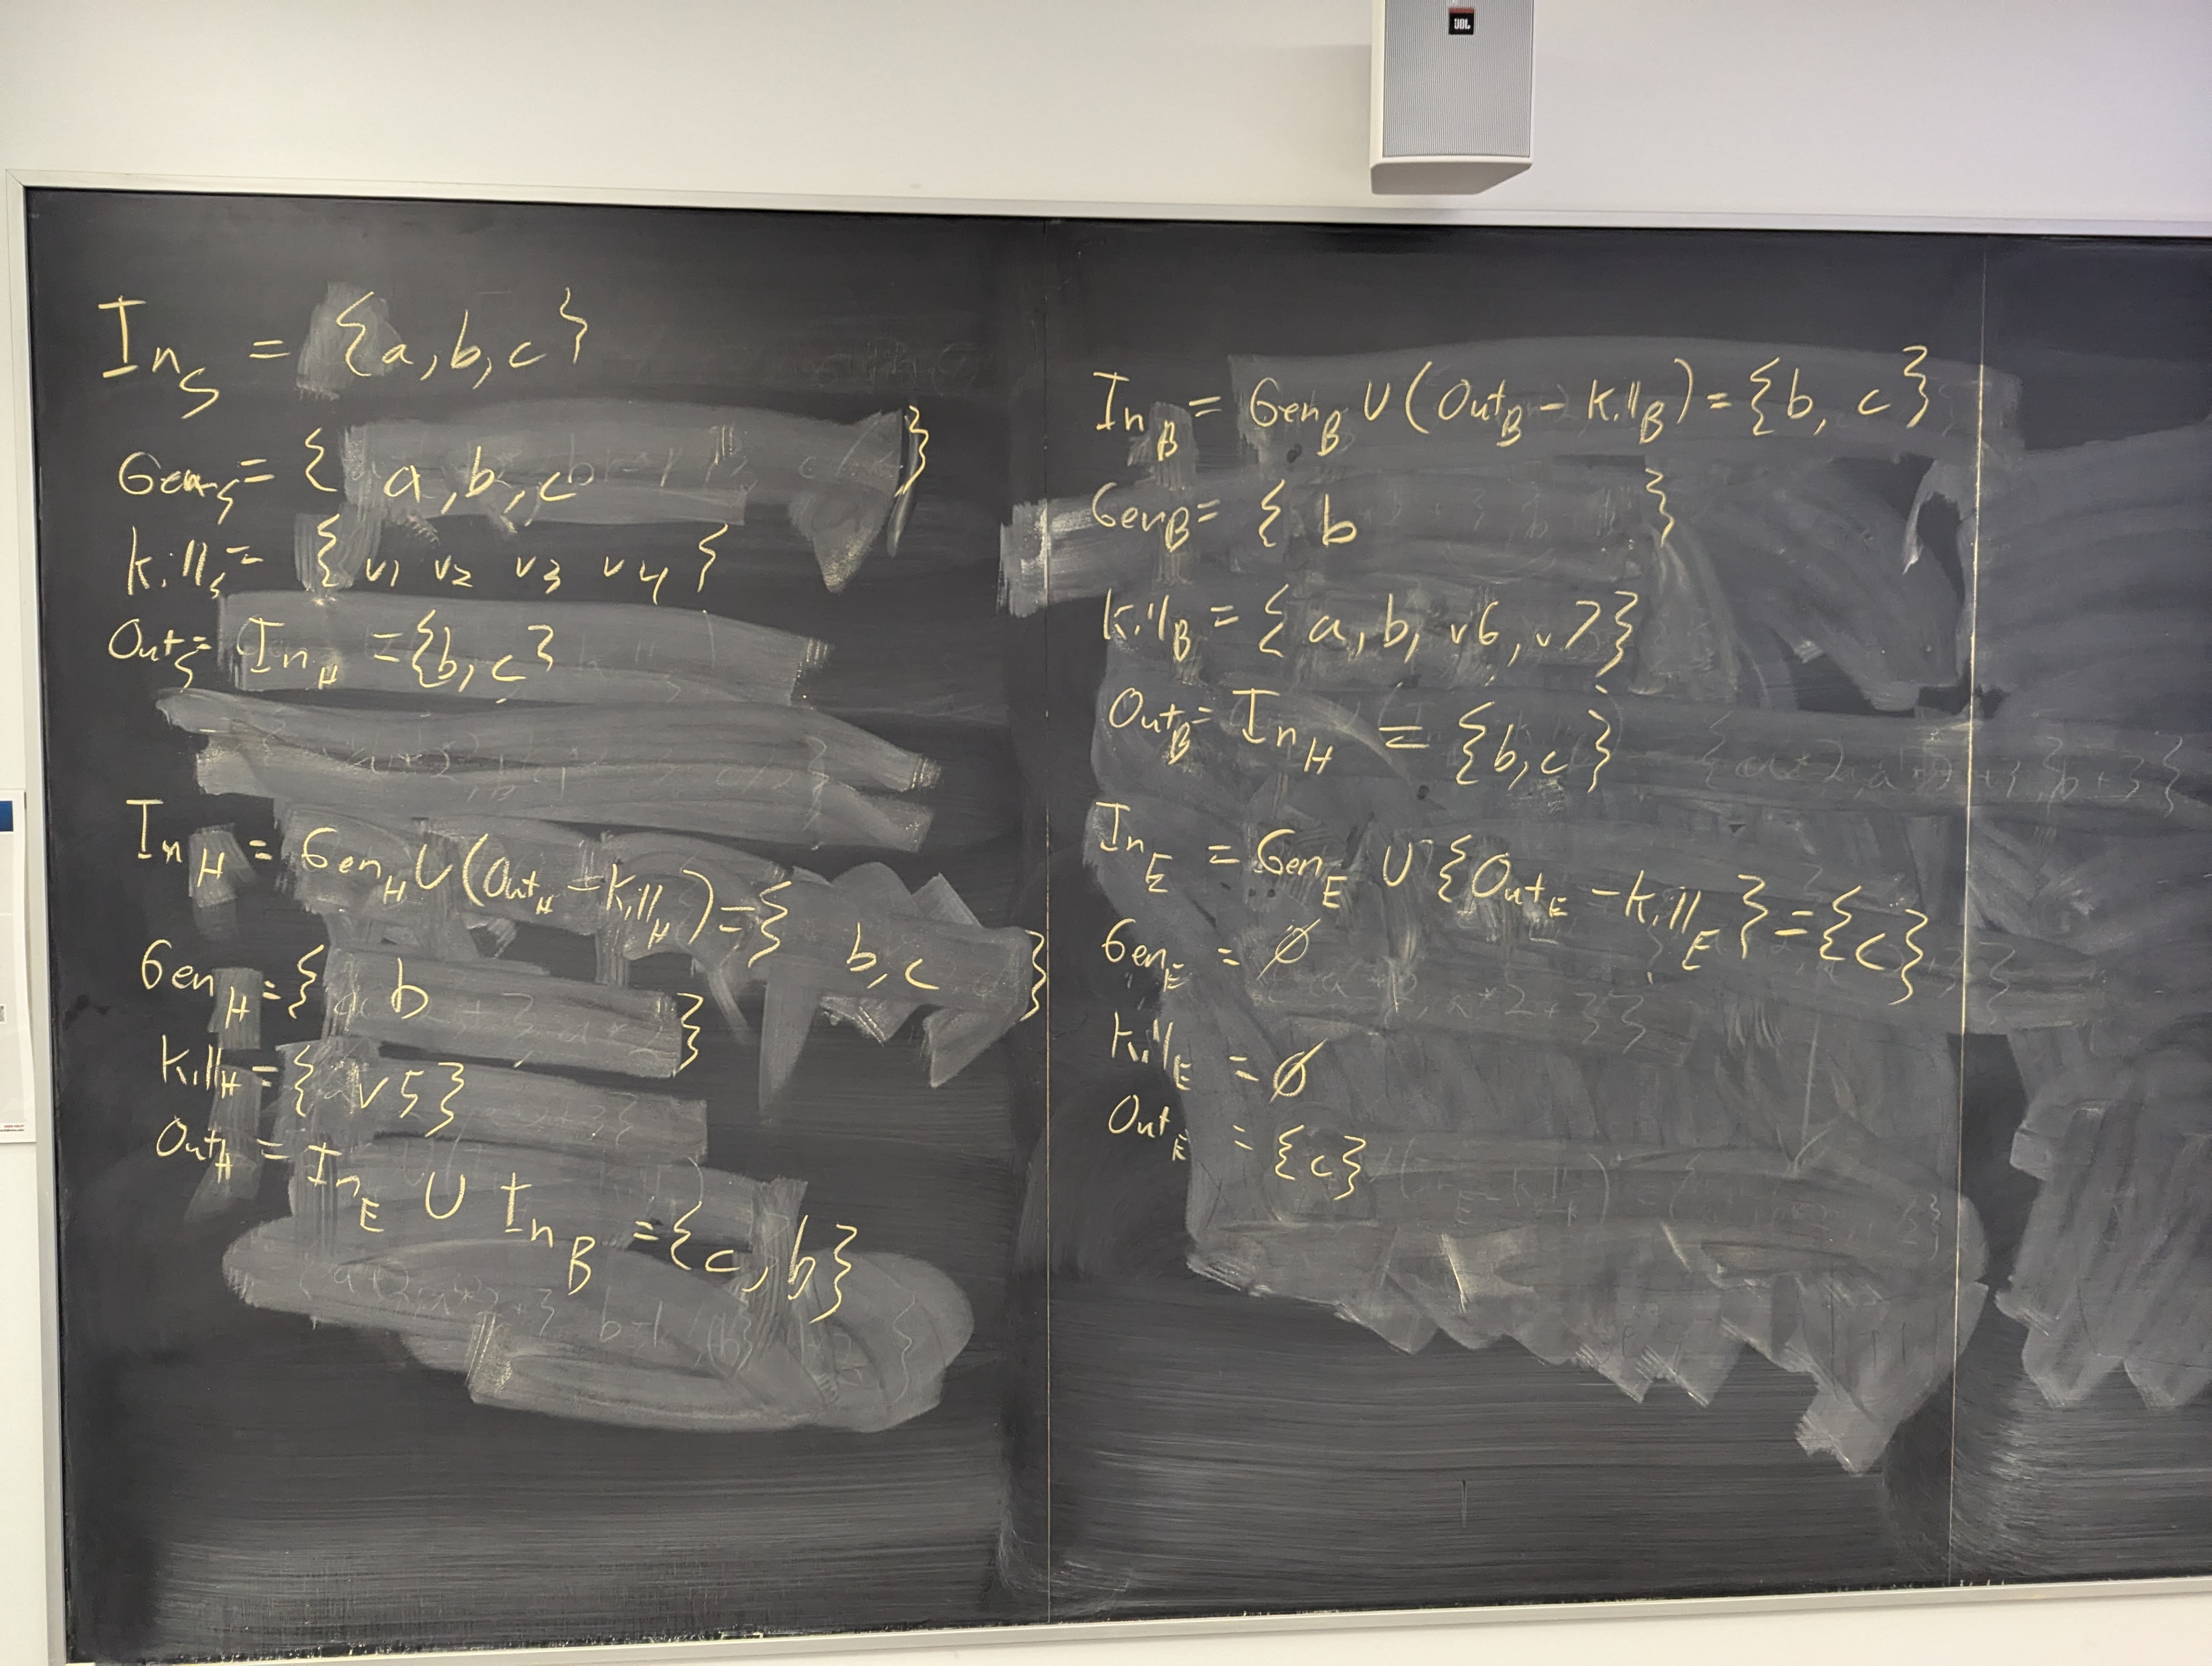 JBL
In_S = {a, b, c}
Gen_S = { a, b, c }
Kill_S = { v1 v2 v3 v4 }
Out_S = In_H = {b, c}
In_H = Gen_H ∪ (Out_H − Kill_H) = { b, c }
Gen_H = { b }
Kill_H = { v5 }
Out_H = In_E ∪ In_B = {c, b}
In_B = Gen_B ∪ (Out_B − Kill_B) = {b, c}
Gen_B = { b }
Kill_B = { a, b, v6, v7 }
Out_B = In_H = {b, c}
In_E = Gen_E ∪ {Out_E − Kill_E} = {c}
Gen_E = ∅
Kill_E = ∅
Out_E = {c}